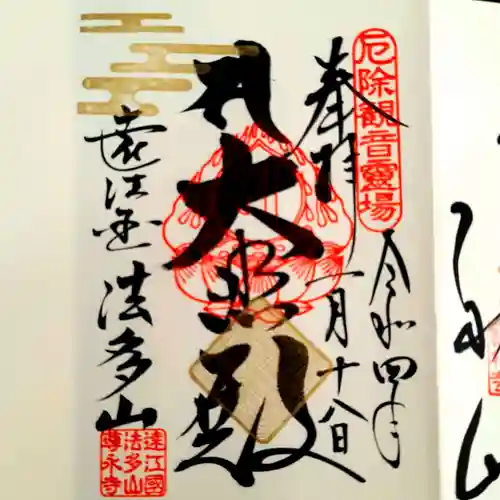 厄除観音霊場
奉拝
令和四年
一月十八日
大悲殿
遠江国
法多山
遠江國
法多山
尊永寺